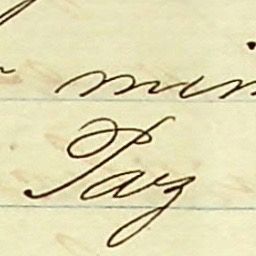 min
Paz